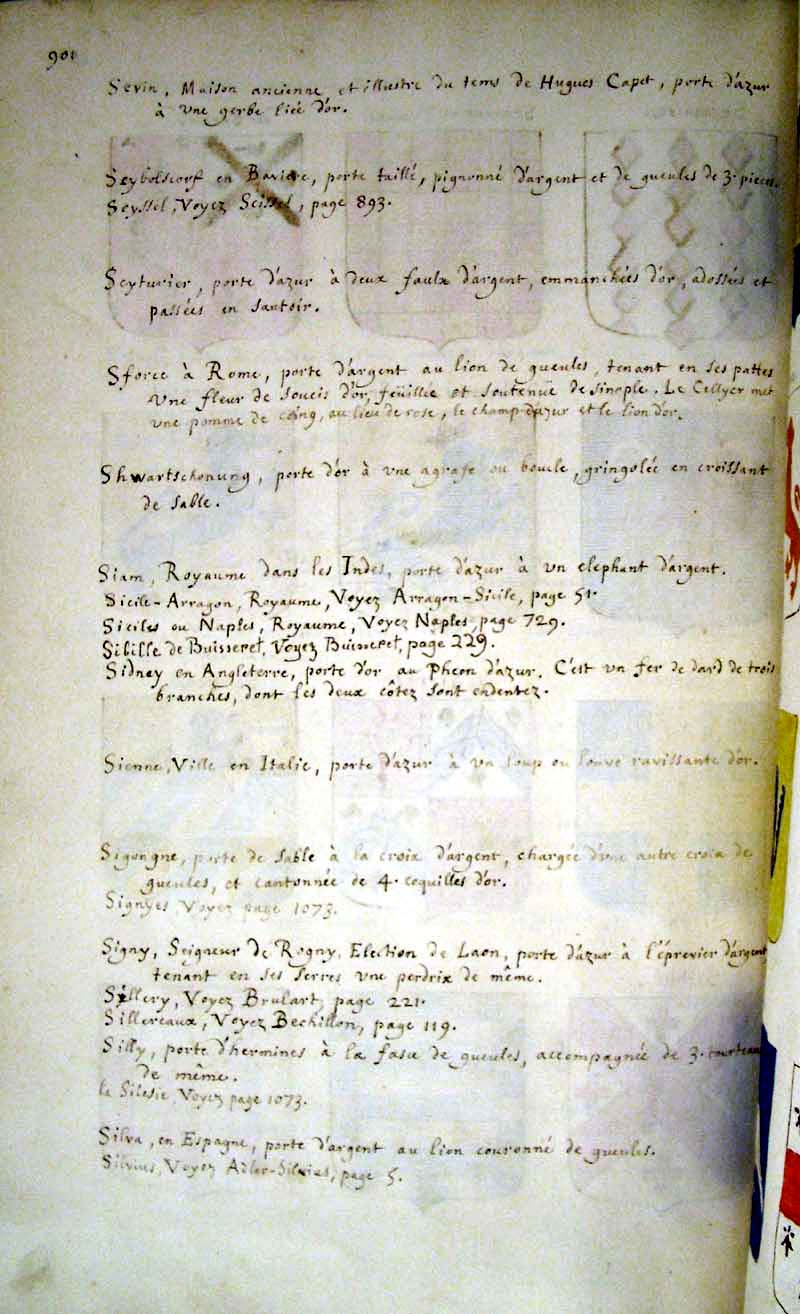 901
Sevin, Maison ancienne et illustre du tems de Hugues Capet, porte d'azur
à une gerbe liée d'or.
Seybolstorf en Baviere, porte taillé, pignonné d'argent et de gueules de 3. pieces.
Seyssel, Voyez Seissel, page 893.
Seyturier, porte d'azur à deux faulx d'argent, emmanchées d'or, adossées et
passées en sautoir.
Sforce à Rome, porte d'argent au lion de gueules, tenant en ses pattes
une fleur de soucis d'or, feüillée et soutenüe de sinople. Le Cellyer met
une pomme de coing, au lieu de rose, le champ d'azur et le lion d'or.
Shwartschonung, porte d'or à une agrafe ou boucle, gringolée en croissant
de sable.
Siam, Royaume dans les Indes, porte d'azur à un elephant d'argent.
Sicile-Arragon, Royaume, Voyez Arragon-Sicile, page 51.
Siciles ou Naples, Royaume, Voyez Naples, page 729.
Sibille de Buisseret, Voyez Buisseret, page 229.
Sidney en Angleterre, porte d'or au Pheon d'azur. C'est un fer de dard de trois
branches, dont les deux côtez sont endentez.
Sienne, Ville en Italie, porte d'azur à un loup ou louve ravissante d'or.
Sigongne, porte de sable à la croix d'argent, chargée d'une autre croix de
gueules, et cantonnée de 4. coquilles d'or.
Signyes Voyez page 1073.
Signy, Seigneur de Rogny, Election de Laon, porte d'azur à l'éprevier d'argent
tenant en ses serres une perdrix de même.
Sillery, Voyez Brulart, page 221.
Sillereaux, Voyez Bechillon, page 119.
Silly, porte d'hermines à la fasce de gueules, accompagnée de 3. tourteaux
de même.
la Silesie Voyez page 1073.
Silva, en Espagne, porte d'argent au lion couronné de gueules.
Silvius, Voyez page 5.